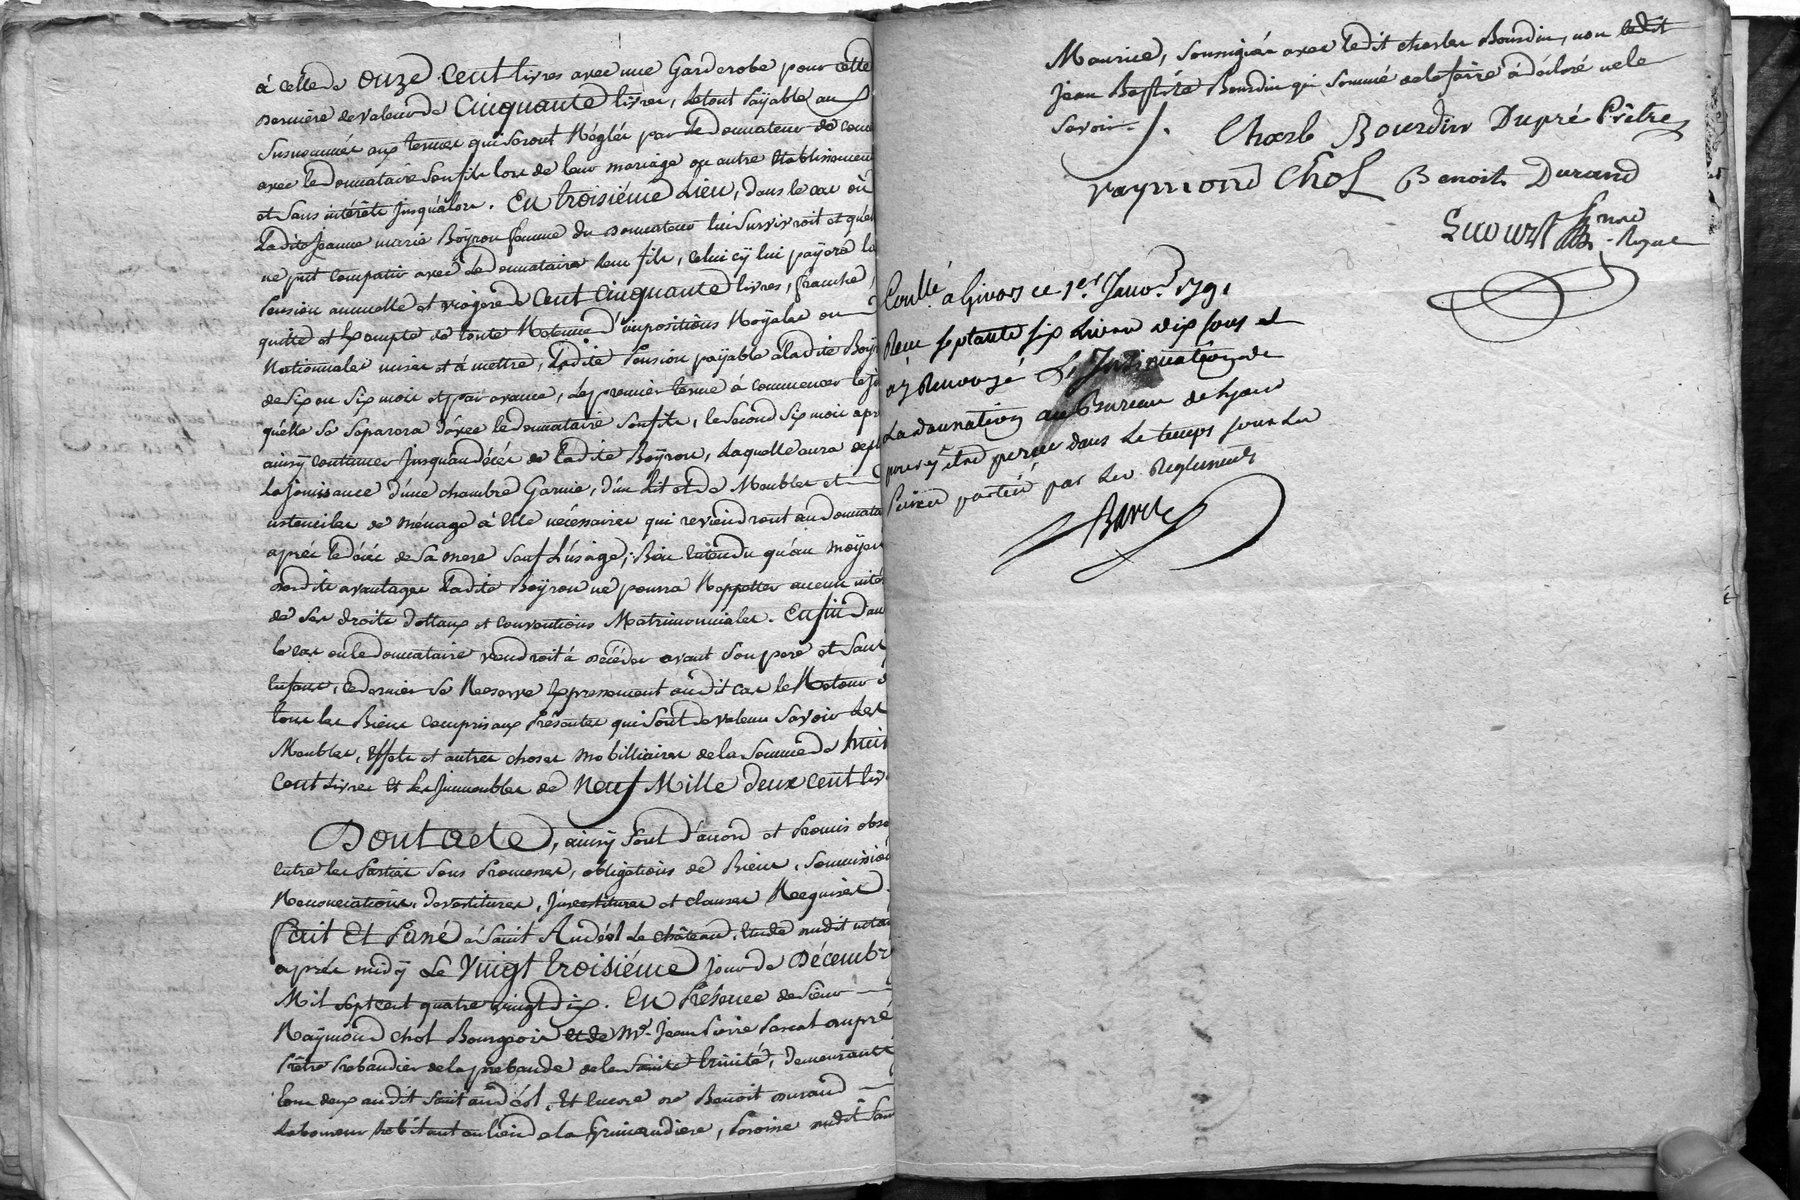 à celle de onze cent livres avec une Garderobe pour cette
derniere de valeur de Cinquante livres, le tout païable aux
susnommés aux termes qui seront Réglés par le Donnateur de conc
avec le donnataire son fils lors de leur mariage ou autre Etablissement
et sans intérêts jusqu'alors. En troisiéme Lieu, dans le cas où
Ladite Jeanne marie Boÿron femme du Donnateur lui Survivroit et qu'el
ne put compatir avec le donnataire leur fils, celui cy lui payera la
Pension annuelle et viagere de Cent Cinquante livres, franche,
quitte et Exempte de toute Retenue d'impositions Royales ou
Nationnales mises et à mettre, Ladite Pension païable à ladite Boÿr
de six en six mois et par avance, le premier terme à commencer le jo
quelle se separera d'avec le donnataire son fils, le second six mois apr
ainsy continuer jusqu'au décès de Ladite Boÿron, Laquelle aura de pl
La jouissance d'une chambre Garnie, d'un Lit et de Meubles et
ustenciles de ménage à Elle nécessaires qui reviendront au Donnata
après le décès de sa mere sauf L'usage ; Bien Entendu qu'au moÿen
desdits avantages Ladite Boÿron ne pourra Rappeller aucun inté
de ses droits dottaux et conventions Matrimonniales. Enfin dans
le cas où le Donnataire viendroit à décéder avant son pere et sans
Enfans, ce dernier se Reserve Expressement audit cas le Retour d
tous les Biens compris aux Présentes qui sont de valeur Savoir Les
Meubles, Effets et autres choses mobilliaires de la Somme de huit
Cent Livres et Les Immeubles de Neuf Mille deux cent liv
Dont acte, ainsy sont d'accord et Promis obse
Entre les Parties sous Promesses, obligations de Biens, Soumissions
Renonciations, devestitures, Investitures et clauses Requises.
Fait Et Passé à Saint Andéol Le Château, Etude dudit nota
après midÿ Le Vingt troisiéme jour de Décembr
Mil sept cent quatre vingt dix. En Présence de Sieur
Raÿmond Chol Bourgeois et de Mr. Jean Pierre Pascal Dupré
Prêtre Prebandier de la prebande de la Sainte trinité, demeurants
tous deux audit Saint andéol, Et Encore de Benoit Durand
Laboureur habitant au lieu de la Grimaudiere, Paroisse dudit Saint
Maurice, soussignés avec ledit charles Bourdin, non ledit
Jean Baptiste Bourdin qui sommé de le faire à déclaré ne le
Savoir.
Charle Bourdin Dupré Prêtre
raymond Chol Benoit Durand
Nre Royal
Conllé à Givors ce 1er. Janvr. 1791
Reçu septante six Livres dix sous et
aÿ Renvoyé L'Insinuation de
La donnation au Bureau de Lyon
pour ÿ etre perçue dans Le temps sous Les
Peines portées par Les Reglements